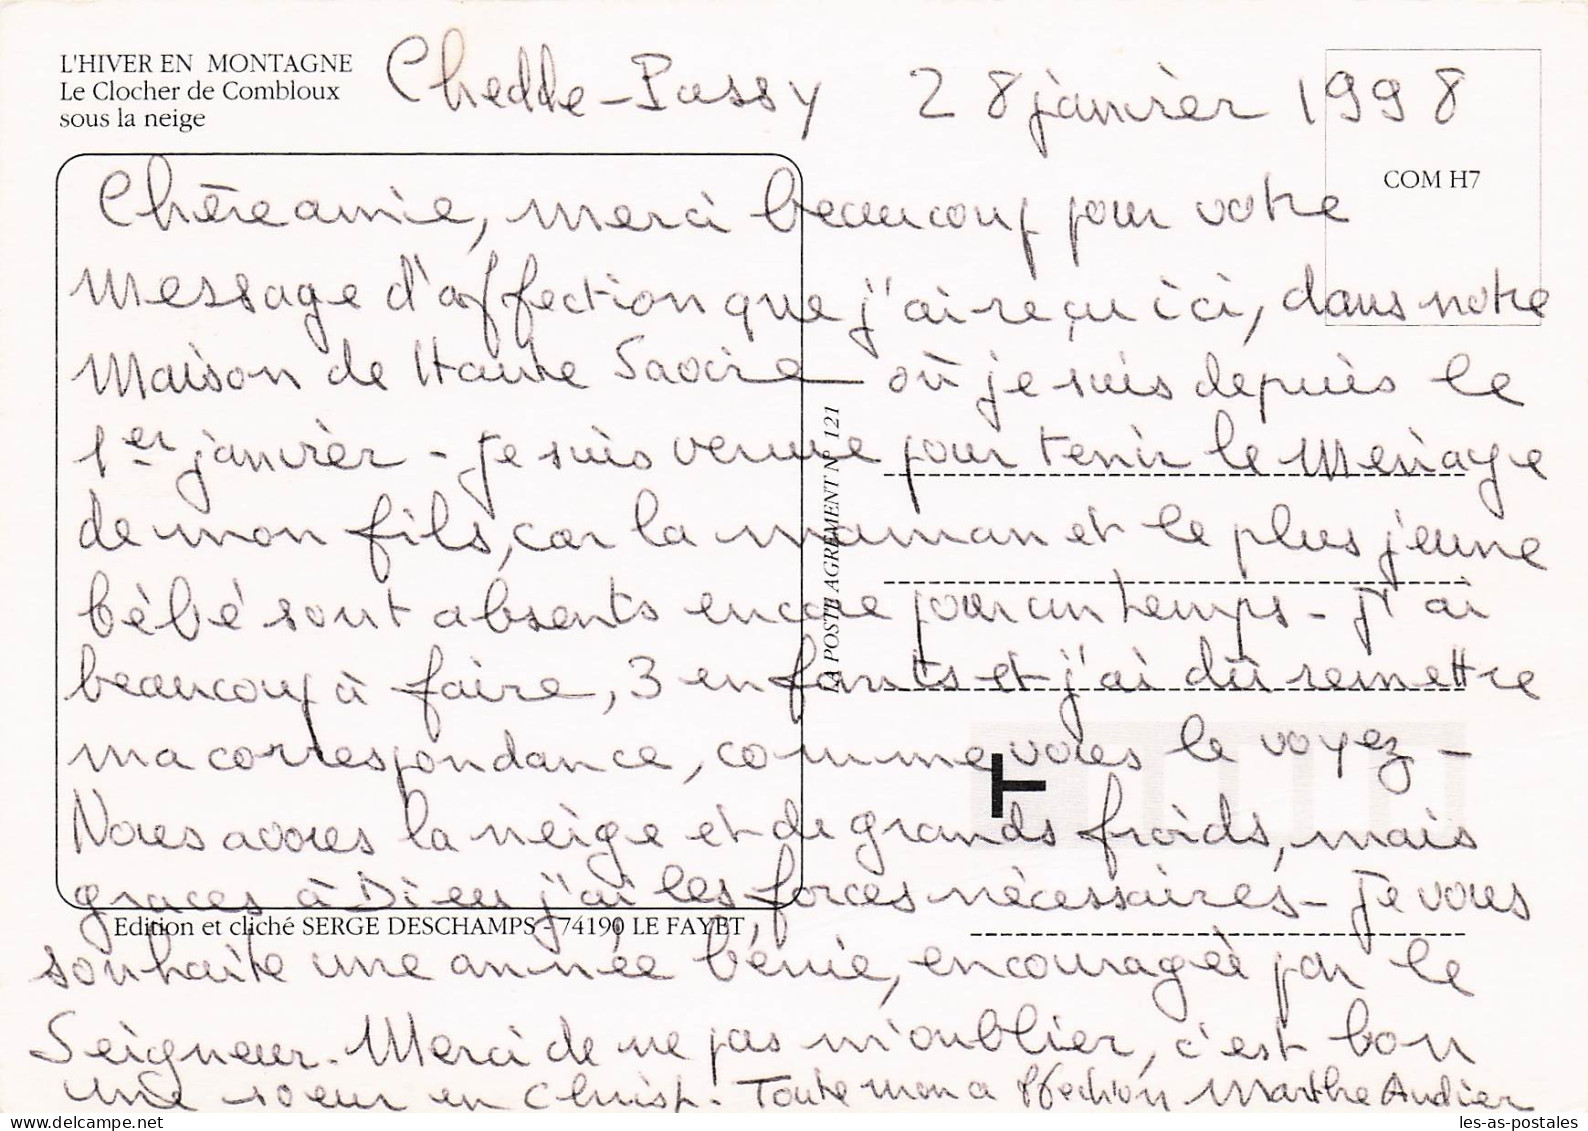 L'HIVER EN MONTAGNE
Le Clocher de Combloux
sous la neige
Chedde-Passy 28 janvier 1998
COM H7
Chère amie, merci beaucoup pour votre
message d'affection que j'ai reçu ici, dans notre
Maison de Haute Savoie où je suis depuis le
1er janvier - Je suis venue pour tenir le ménage
de mon fils, car la maman et le plus jeune
bébé sont absents encore pour un temps - J'ai
beaucoup à faire, 3 enfants et j'ai dû remettre
ma correspondance, comme vous le voyez -
Nous avons la neige et de grands froids, mais
graces à Dieu j'ai les forces nécessaires - Je vous
souhaite une année bénie, encouragée par le
Seigneur. Merci de ne pas m'oublier, c'est bon
une soeur en Christ. Toute mon affection Marthe Audier
LA POSTE AGREMENT N° 121
T
Edition et cliché SERGE DESCHAMPS - 74190 LE FAYET
les-as-postales